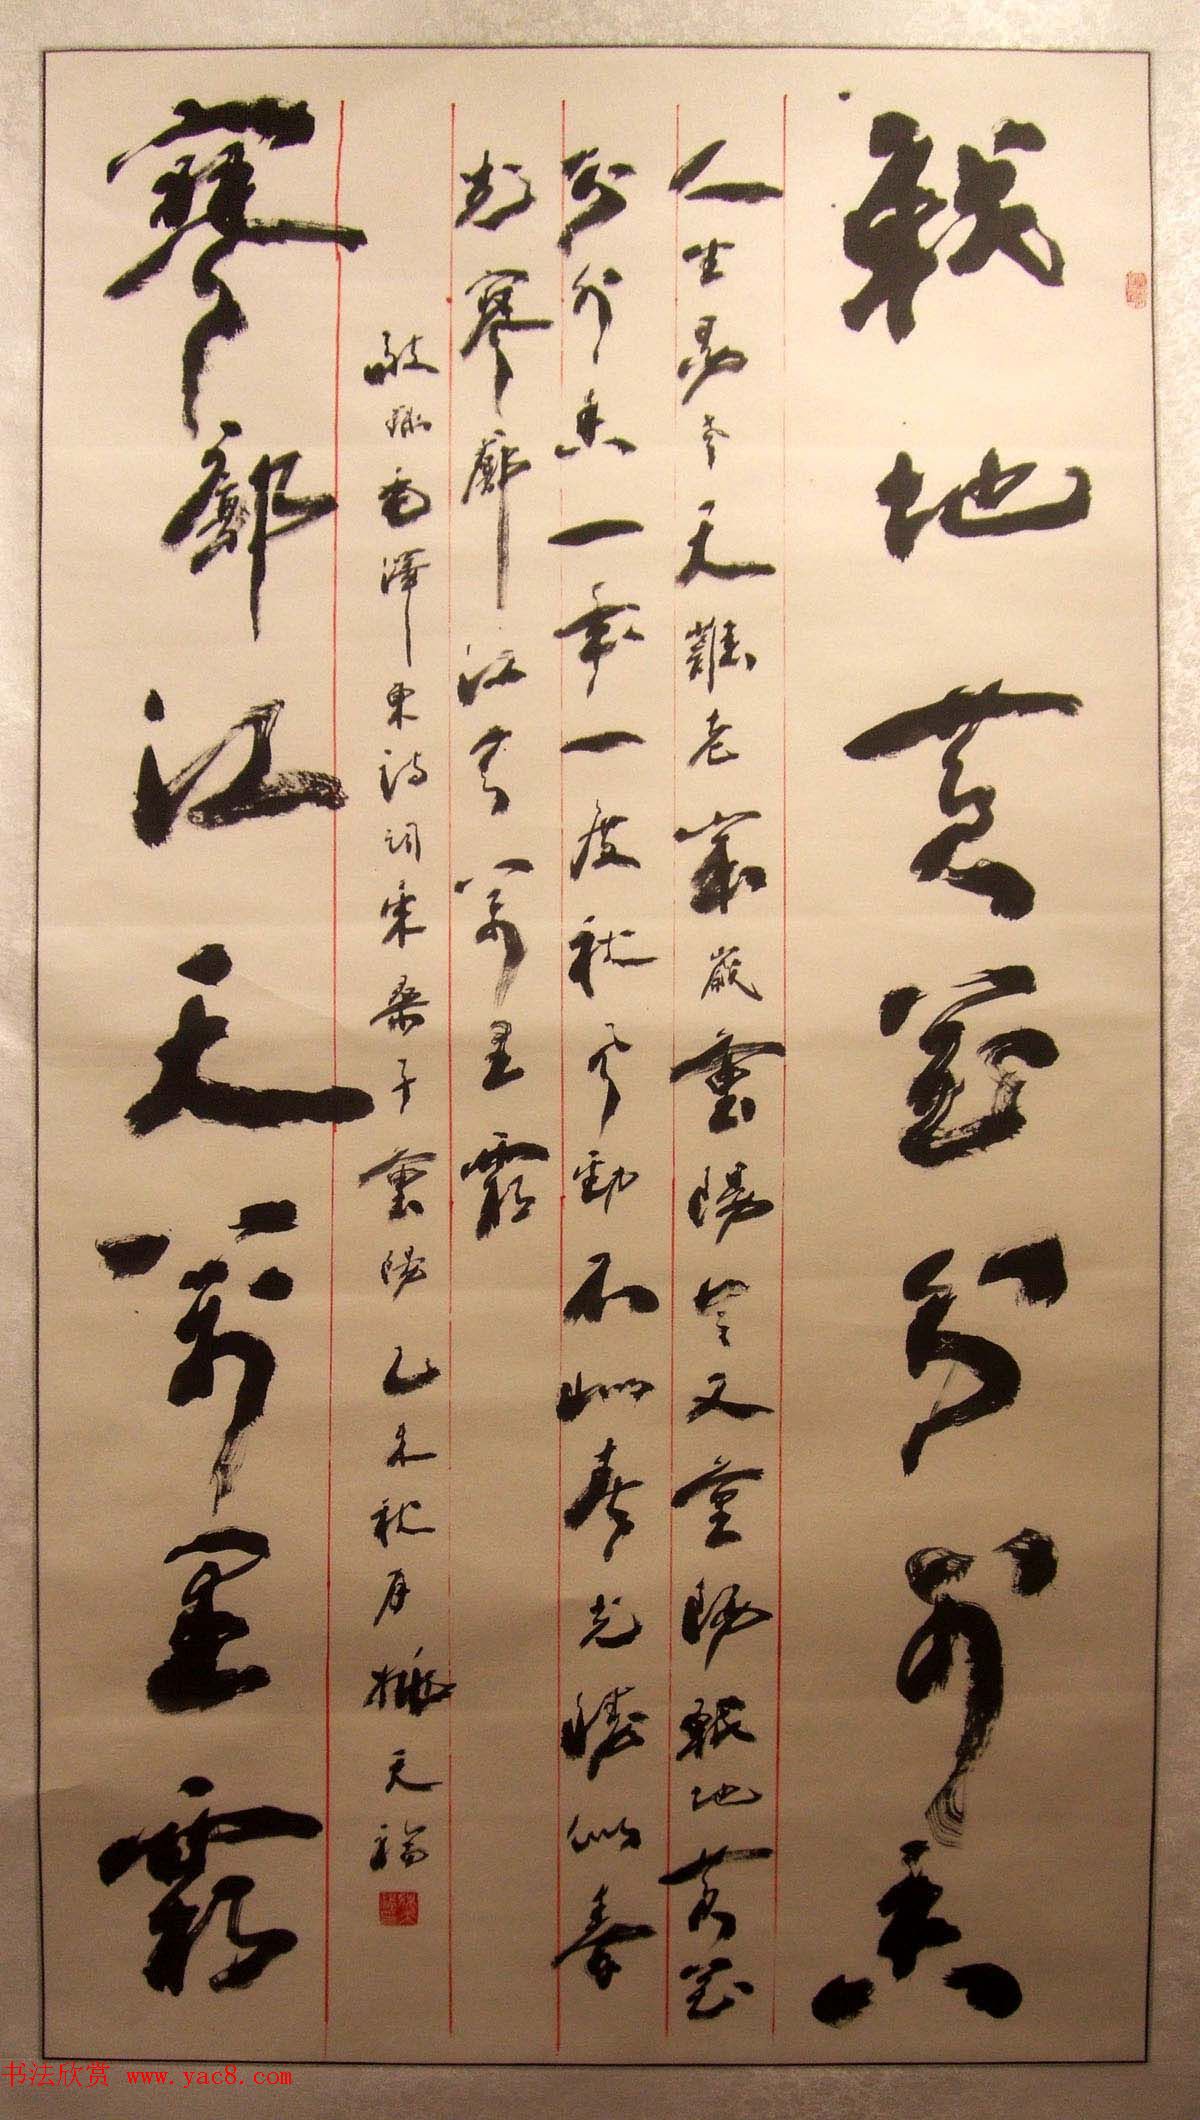 戰地黃花分外香
人生易老天難老歲歲重陽今又重陽戰地黃花
分外香一年一度秋風勁不似春光勝似春
光寥廓江天萬里霜
敬録毛澤東詩詞采桑子重陽乙未秋月
寥廓江天萬里霜
书法欣赏 www.yac8.com